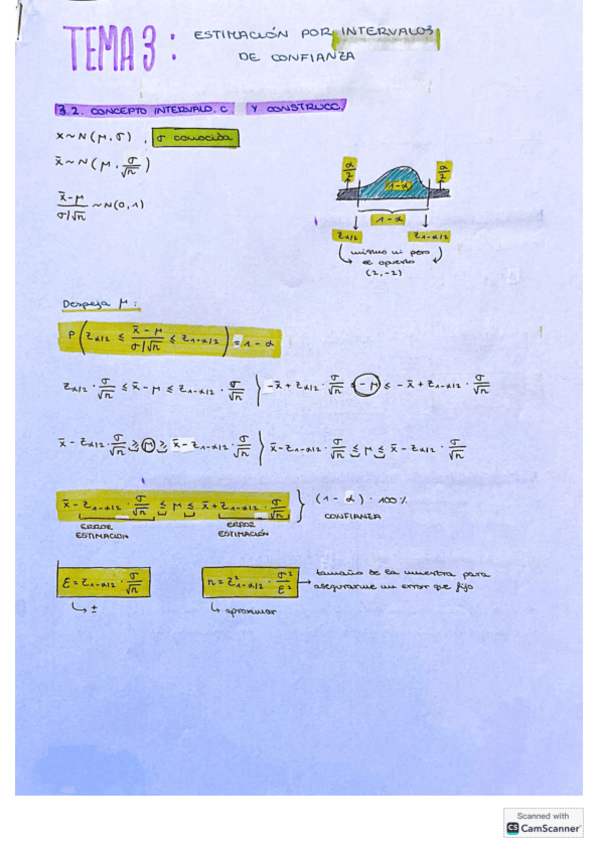 TEMA 3: ESTIMACIÓN POR INTERVALOS
DE CONFIANZA
3.2. CONCEPTO INTERVALO. C. Y CONSTRUCC.
x ~ N(μ, σ), σ conocida
x̄ ~ N(μ, σ/√n)
(x̄-μ)/(σ/√n) ~ N(0,1)
α/2 α/2
1-α
1-α
z α/2 z 1-α/2
mismo nº pero
el opuesto
(2,-2)
Despeja μ:
P(z α/2 ≤ (x̄-μ)/(σ/√n) ≤ z 1-α/2) = 1-α
z α/2 · σ/√n ≤ x̄-μ ≤ z 1-α/2 · σ/√n } -x̄ + z α/2 · σ/√n ≤ -μ ≤ -x̄ + z 1-α/2 · σ/√n
x̄ - z α/2 · σ/√n ≥ μ ≥ x̄ - z 1-α/2 · σ/√n } x̄ - z 1-α/2 · σ/√n ≤ μ ≤ x̄ - z α/2 · σ/√n
x̄ - z 1-α/2 · σ/√n ≤ μ ≤ x̄ + z 1-α/2 · σ/√n } (1-α)·100%
CONFIANZA
ERROR ESTIMACIÓN ERROR ESTIMACIÓN
ε = z 1-α/2 · σ/√n n = z² 1-α/2 · σ²/ε² → tamaño de la muestra para
asegurarme un error que fijo
↳ ± ↳ aproximar
Scanned with
CS CamScanner